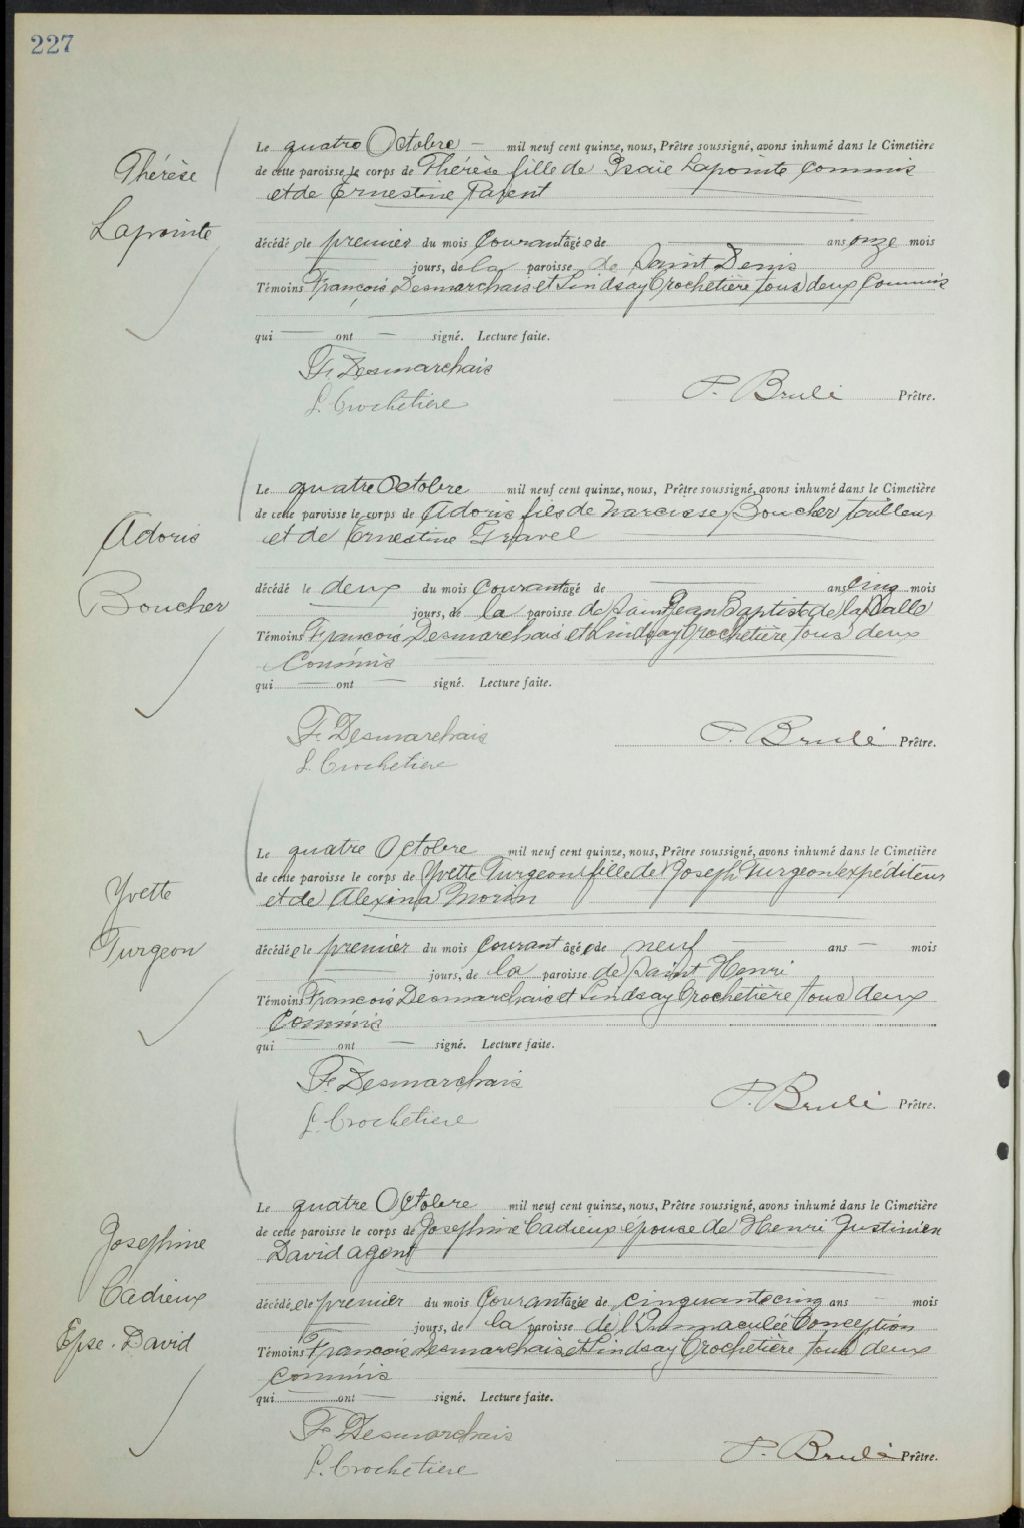 227
Thérèse
Lapointe
Le quatre Octobre — mil neuf cent quinze, nous, Prêtre soussigné, avons inhumé dans le Cimetière
de cette paroisse le corps de Thérèse fille de Isaïe Lapointe commis
et de Ernestine Parent
décédée le premier du mois Courant âgée de ans onze mois
jours, de la paroisse de Saint Denis
Témoins François Desmarchais et Lindsay Crochetière tous deux Commis
qui — ont — signé. Lecture faite.
F. Desmarchais
L. Crochetiere
P. Brulé Prêtre.
Adoris
Boucher
Le quatre Octobre mil neuf cent quinze, nous, Prêtre soussigné, avons inhumé dans le Cimetière
de cette paroisse le corps de Adoris fils de Narcisse Boucher tailleur
et de Ernestine Gravel
décédé le deux du mois Courant âgé de ans cinq mois
jours, de la paroisse de Saint Jean Baptiste de la Salle
Témoins François Desmarchais et Lindsay Crochetière tous deux
Commis
qui — ont — signé. Lecture faite.
F. Desmarchais
L. Crochetiere
P. Brulé Prêtre.
Yvette
Turgeon
Le quatre Octobre mil neuf cent quinze, nous, Prêtre soussigné, avons inhumé dans le Cimetière
de cette paroisse le corps de Yvette Turgeon fille de Joseph Turgeon expéditeur
et de Alexina Morin
décédée le premier du mois Courant âgée de neuf — ans — mois
jours, de la paroisse de Saint Henri
Témoins François Desmarchais et Lindsay Crochetière tous deux
Commis
qui — ont — signé. Lecture faite.
F. Desmarchais
L. Crochetiere
P. Brulé Prêtre.
Josephine
Cadieux
Epse. David
Le quatre Octobre mil neuf cent quinze, nous, Prêtre soussigné, avons inhumé dans le Cimetière
de cette paroisse le corps de Josephine Cadieux épouse de Henri Justinien
David agent
décédée le premier du mois Courant âgée de cinquante cinq ans — mois
jours, de la paroisse de l'Immaculée Conception
Témoins François Desmarchais et Lindsay Crochetière tous deux
Commis
qui — ont — signé. Lecture faite.
F. Desmarchais
L. Crochetiere
P. Brulé Prêtre.